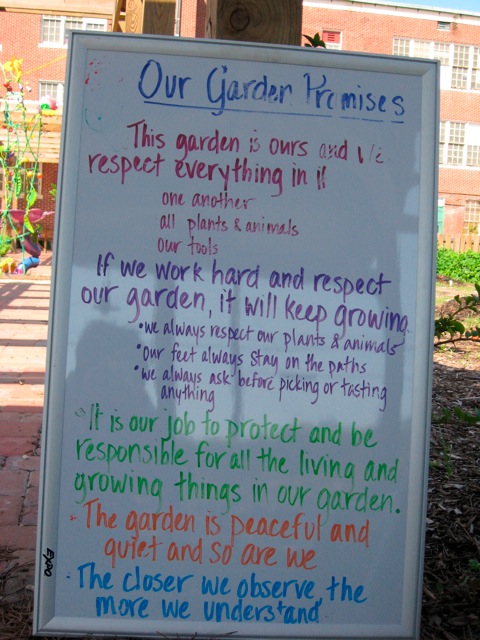 Our Garden Promises
This garden is ours and we
respect everything in it
one another
all plants & animals
our tools
If we work hard and respect
our garden, it will keep growing
• we always respect our plants & animals
• our feet always stay on the paths
• we always ask before picking or tasting
anything
It is our job to protect and be
responsible for all the living and
growing things in our garden.
- The garden is peaceful and
quiet and so are we
• The closer we observe, the
more we understand
EXPO